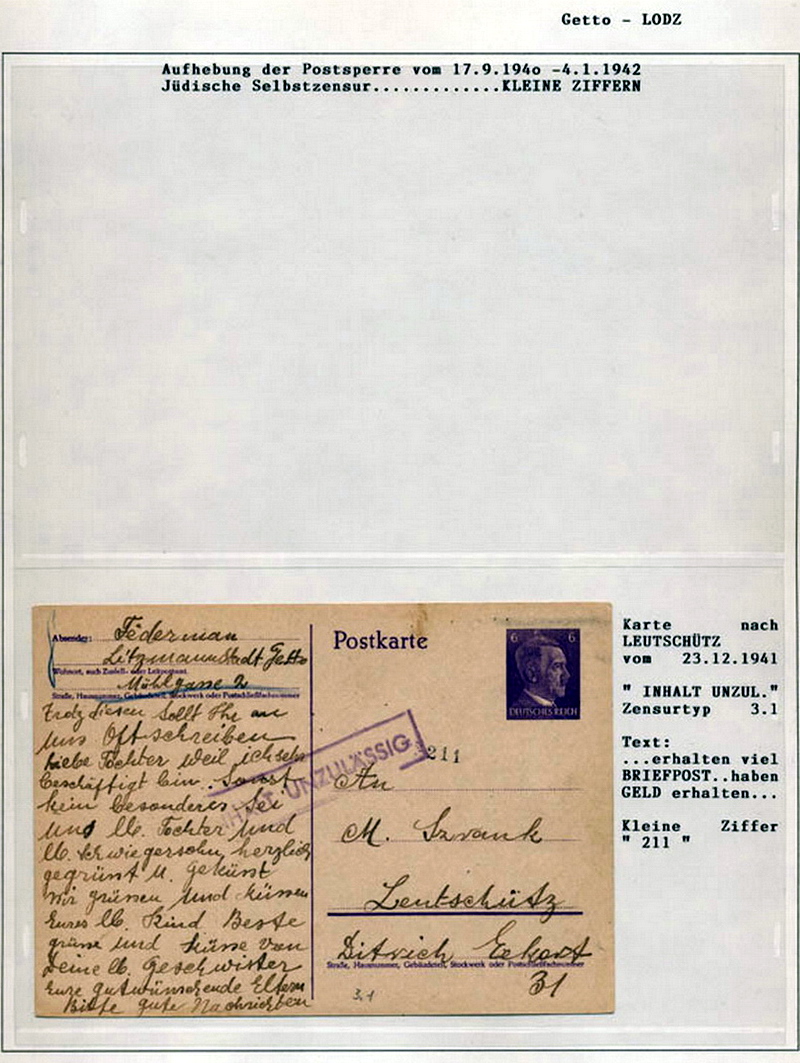 Getto - LODZ
Aufhebung der Postsperre vom 17.9.194o -4.1.1942
Jüdische Selbstzensur.............KLEINE ZIFFERN
Absender: Federman
Litzmannstadt Getto
Wohnort, auch Zustell- oder Leitpostamt
Mühlgasse 2
Straße, Hausnummer, Gebäudeteil, Stockwerk oder Postschließfachnummer
Trotz diesen sollt Ihr an
uns Oft schreiben
liebe Tochter weil ich sehr
beschäftigt bin. Sonst
kein besonderes Sei
und lb. Tochter und
lb. Schwiegersohn herzlich
gegrünst u. geküsst
Wir grüssen und küssen
Eures lb. Kind Beste
grüsse und küsse von
Deine lb. Geschwister
Eure gutwünschende Eltern
Bitte gute Nachrichten
Postkarte
6 6
DEUTSCHES REICH
INHALT UNZULÄSSIG
211
An
M. Szrank
Leutschütz
Ditrich Eckart
Straße, Hausnummer, Gebäudeteil, Stockwerk oder Postschließfachnummer
31
3.1
Karte nach
LEUTSCHÜTZ
vom 23.12.1941
" INHALT UNZUL."
Zensurtyp 3.1
Text:
...erhalten viel
BRIEFPOST..haben
GELD erhalten...
Kleine Ziffer
" 211 "